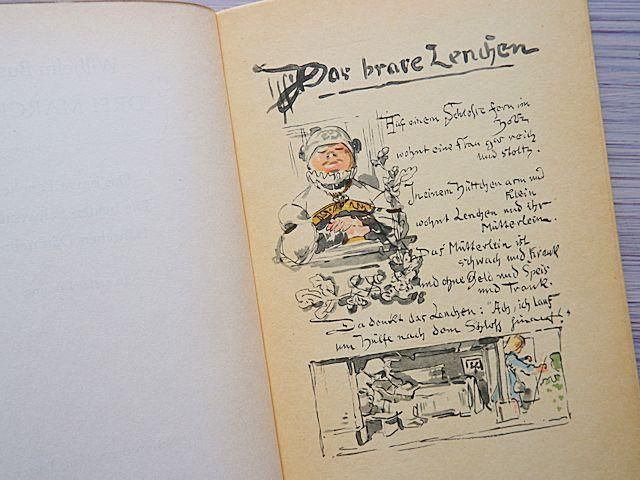 Wilhelm
DREI
Das brave Lenchen
Auf einem Schlosse fern im
Holtz
wohnt eine Frau gar reich
und stoltz.
In einem Hüttchen arm und
klein
wohnt Lenchen und ihr
Mütterlein.
Das Mütterlein ist
schwach und krank
und ohne Geld und Speis
und Trank.
Da denkt das Lenchen: "Ach, ich lauf
um Hülfe nach dem Schloss hinauf!"